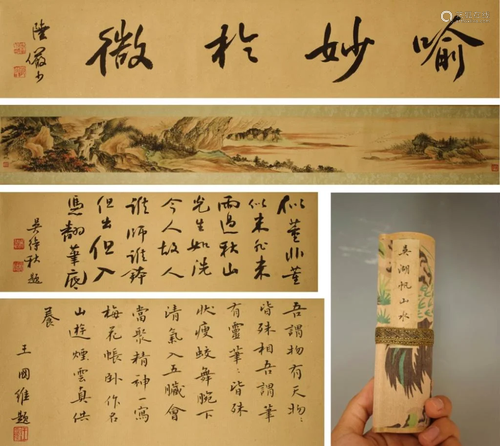 喻妙於微
陸儼少
似董非董
似米非米
雨過秋山
光生如洗
今人故人
誰師誰鉢
但出但入
憑翻筆底
吳待秋題
吾謂物有天物〻
皆殊相吾謂筆
有靈筆〻皆殊
狀瘦蛟舞腕下
清氣入五臟會
當聚精神一寫
梅花帳卧作名
山遊煙雲真供
養
王國維題
吳湖帆山水